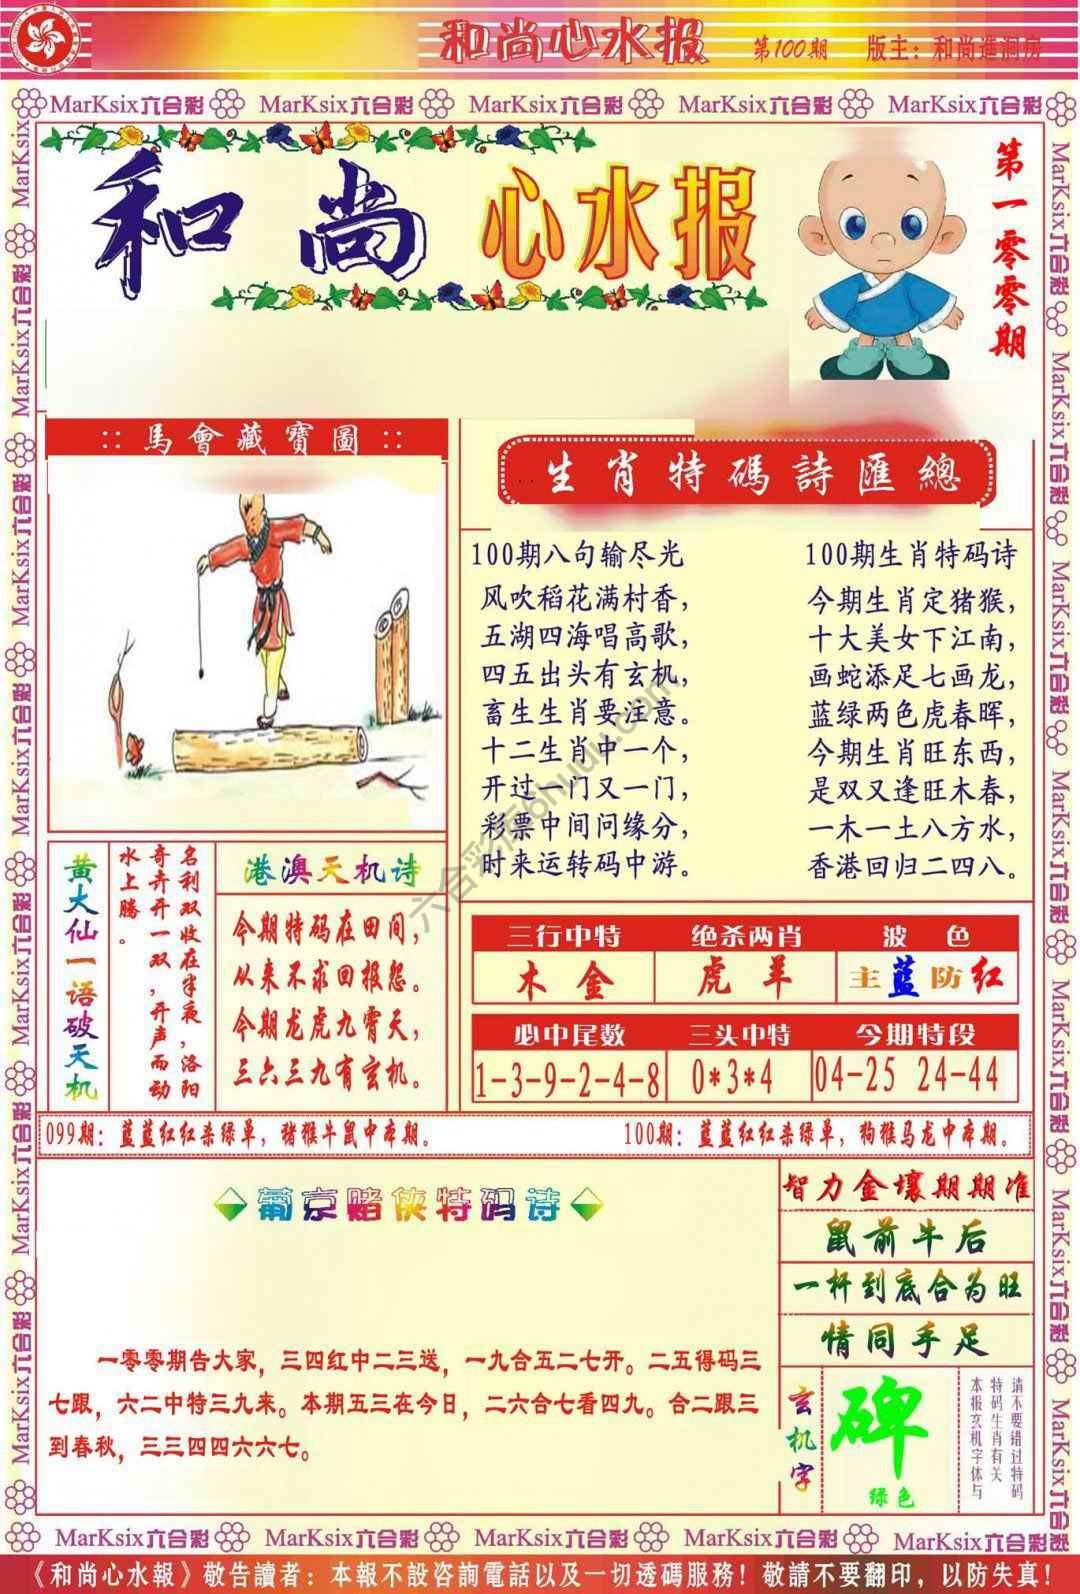 和尚心水报 第100期 版主：和尚進洞房
MarKsix六合彩 MarKsix六合彩 MarKsix六合彩 MarKsix六合彩 MarKsix六合彩
和尚 心水报
第一零零期
:: 馬會藏寶圖 ::
生肖特碼詩匯總
100期八句输尽光
风吹稻花满村香，
五湖四海唱高歌，
四五出头有玄机，
畜生生肖要注意。
十二生肖中一个，
开过一门又一门，
彩票中间问缘分，
时来运转码中游。
100期生肖特码诗
今期生肖定猪猴，
十大美女下江南，
画蛇添足七画龙，
蓝绿两色虎春晖，
今期生肖旺东西，
是双又逢旺木春，
一木一土八方水，
香港回归二四八。
黄大仙一语破天机
名利双收在半夜，洛阳
奇卉开一双，开声而动
水上腾。
港澳天机诗
今期特码在田间，
从来不求回报怨。
今期龙虎九霄天，
三六三九有玄机。
三行中特 绝杀两肖 波色
木金 虎羊 主蓝防红
必中尾数 三头中特 今期特段
1-3-9-2-4-8 0*3*4 04-25 24-44
099期：蓝蓝红红杀绿单，猪猴牛鼠中本期。 100期：蓝蓝红红杀绿单，狗猴马龙中本期。
葡京赌侠特码诗
一零零期告大家，三四红中二三送，一九合五二七开。二五得码三
七跟，六二中特三九来。本期五三在今日，二六合七看四九。合二跟三
到春秋，三三四四六六七。
智力金壤期期准
鼠前牛后
一杆到底合为旺
情同手足
玄机字
碑
绿色
请不要错过特码
特码生肖有关
本报玄机字体与
MarKsix六合彩 MarKsix六合彩 MarKsix六合彩 MarKsix六合彩 MarKsix六合彩
《和尚心水報》敬告讀者：本報不設咨詢電話以及一切透碼服務！敬請不要翻印，以防失真！